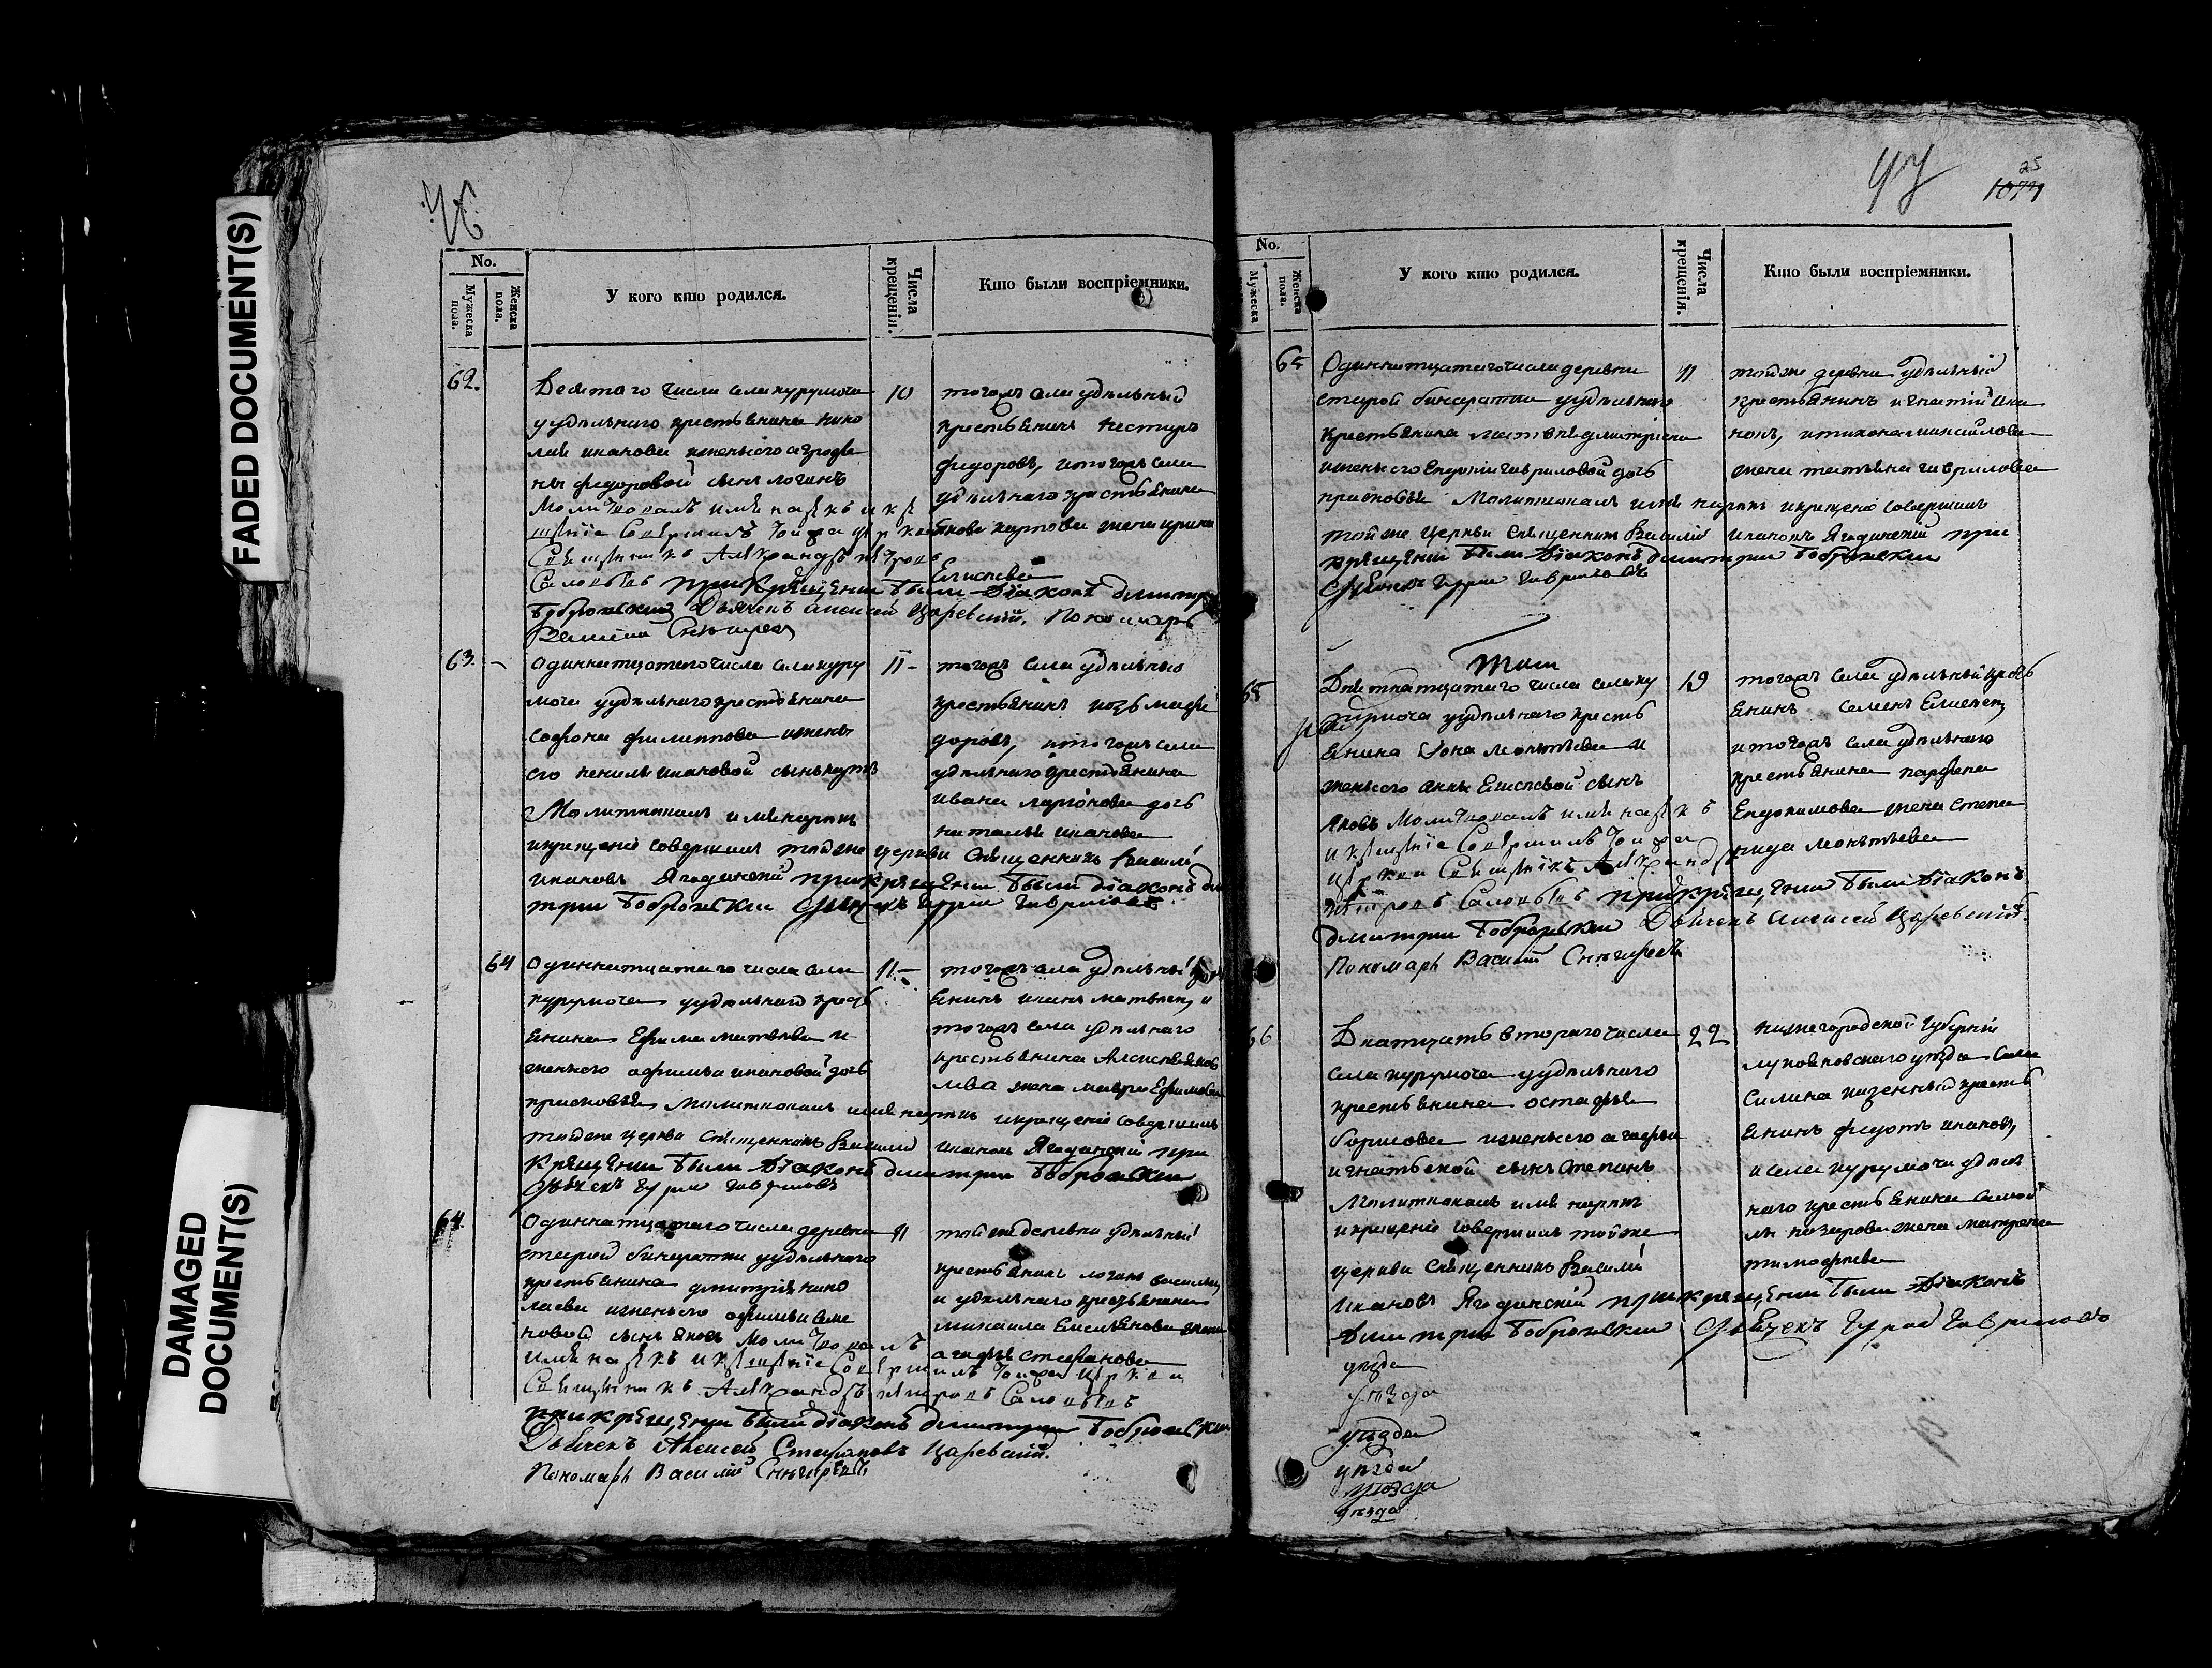 FADED DOCUMENT(S)
DAMAGED
DOCUMENT(S)
No.
Мужеска пола.
Женска пола.
У кого кто родился.
Числа крещенія.
Кто были воспріемники.
62.
Десятаго числа села курумоча
у удѣльнаго крестьянина нико
лая иванова и жены его агрофе
ны федоровой сынъ логинъ
Молитвовалъ имя нарекъ и кре
щеніе Совершилъ Тойже церкви
Священникъ Александръ петровъ
Соловьевъ при крещеніи были Діаконъ димитри
Бобровскии Дьячекъ алексей Царевский, Пономарь
Василий Снегирев
10
тогожъ села удѣльный
крестьянинъ нестеръ
федоровъ, и тогожъ села
удѣльнаго крестьянина
карпова жена ирина
Елисеева
63. -
Одиннатцатаго числа села куру
моча у удѣльнаго крестьянина
софрона филиппова и жены
его ивановой сынъ
Молитвовалъ имя нарекъ
и крещеніе совершилъ тойже церкви священникъ Василій
ивановъ Ягодинский при крещеніи были діаконъ ди
митри Бобровскии дьячекъ гурии гавриловъ
11 -
тогожъ села удѣльный
крестьянинъ козьма фе
доровъ, и тогожъ села
удѣльнаго крестьянина
ивана ларіонова дочь
наталья иванова
64
Одиннатцатаго числа села
курумоча у удѣльнаго кресть
янина Ефима матвѣева и
жены его афимьи ивановой дочь
прасковья Молитвовалъ имя нарекъ и крещеніе совершилъ
тойже церкви священникъ Василий ивановъ Ягодинский при
крещеніи были Діаконъ димитри Бобровскии
дьячекъ гурии гавриловъ
11 -
тогожъ села удѣльный крест
янинъ иванъ матвѣевъ, и
тогожъ села удѣльнаго
крестьянина Алексея яков
лева жена мавра Ефимова
64.
Одиннатцатаго числа деревни
старой бинаратки у удѣльнаго
крестьянина дмитрія нико
лаева и жены его афимьи семе
новой сынъ яковъ Молитвовалъ
имя нарекъ и крещеніе Совершилъ Тойже церкви
Священникъ Александръ петровъ Соловьевъ
при крещеніи были діаконъ димитри Бобровскии
Дьячекъ Алексей Стефановъ Царевский.
Пономарь Василий Снегирев
11
той же деревни удѣльный
крестьянинъ логинъ васильевъ
и удѣльнаго крестьянина
михаила Емельянова жена
агафья стефанова
47
25
1077
No.
Мужеска
Женска пола.
У кого кто родился.
Числа крещенія.
Кто были воспріемники.
65
Одиннатцатаго числа деревни
старой бинаратки у удѣльнаго
крестьянина матвѣя дмитріева
и жены его Евдокіи гавриловой дочь
прасковья Молитвовалъ имя нарекъ и крещеніе совершилъ
той же церкви священникъ Василій ивановъ Ягодинский при
крещеніи были Діаконъ димитри Бобровскии
дьячекъ гурии гавриловъ
11
той же деревни удѣльный
крестьянинъ игнатий ива
новъ, и тихона михайлова
жена татьяна гаврилова
65
Девятнатцатаго числа села ку
румоча у удѣльнаго кресть
янина Іона мокѣева и
жены его анны Елисеевой сынъ
яковъ Молитвовалъ имя нарекъ
и крещеніе Совершилъ Тойже
церкви Священникъ Александръ
петровъ Соловьевъ при крещеніи были Діаконъ
димитри Бобровскии Дьячекъ Алексей Царевский.
Пономарь Василий Снегирев
19
тогожъ села удѣльный крест
янинъ семенъ Елисеевъ,
и тогожъ села удѣльнаго
крестьянина парфена
Евдокимова жена степа
нида мокѣева
66
Дватцать втораго числа
села курумоча у удѣльнаго
крестьянина остафья
борисова и жены его агафьи
игнатьевой сынъ степанъ
Молитвовалъ имя нарекъ
и крещеніе совершилъ тойже
церкви священникъ Василій
ивановъ Ягодинский при крещеніи были Діаконъ
димитрии Бобровскии дьячекъ гурий гавриловъ
22
нижегородской губерніи
лукояновскаго уѣзда села
силина казенный кресть
янинъ федотъ ивановъ,
и села курумоча удѣль
наго крестьянина самой
ла назарова жена матрена
тимофеева
уѣзда
уѣзда
уѣзда
уѣзда
уѣзда
уѣзда